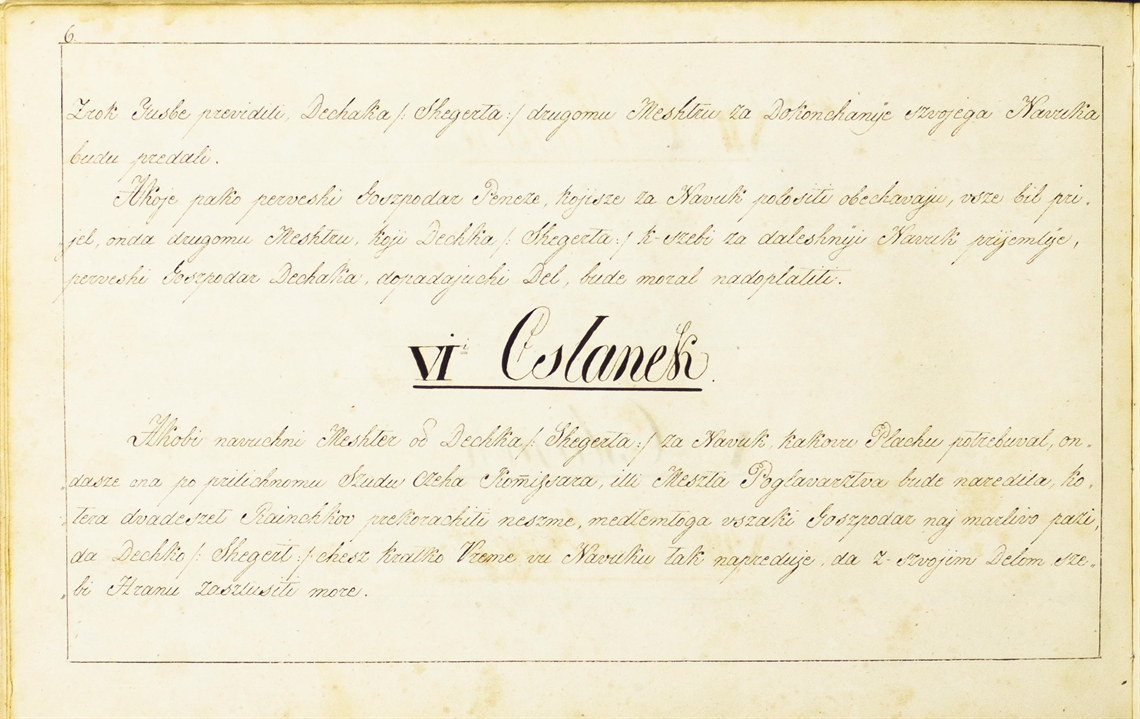 6.
Zrok Gusbe previditi, Dechaka /: Shegerta :/ drugomu Meshtru za Dokonchanÿe szvojega Navuka
budu predali.
Akoje pako perveshi Goszpodar Peneze, kojisze za Navuk polositi obechavaju, vsze bil pri-
jel, onda drugomu Meshtru, koji Dechka /: Shegerta :/ k-szebi za daleshnÿi Navuk prijemlÿe,
perveshi Goszpodar Dechaka, dopadajuchi Del, bude moral nadoplatiti.
VI i Cslanek.
Akobi navuchni Meshter od Dechka /: Shegerta :/ za Navuk, kakovu Plachu potrebuval, on-
dasze ona po prilichnomu Szudu Czeha Komissara, ili Meszta Poglavarztva bude naredila, ko-
tera dvadeszet Rainchkov prekorachiti neszme, medtemtoga vszaki Goszpodar naj marlivo pazi,
da Dechko /: Shegert :/ chesz kratko Vreme vu Navuku tak napreduje, da z-szvojim Delom sze-
bi Hranu zaszlusiti more.